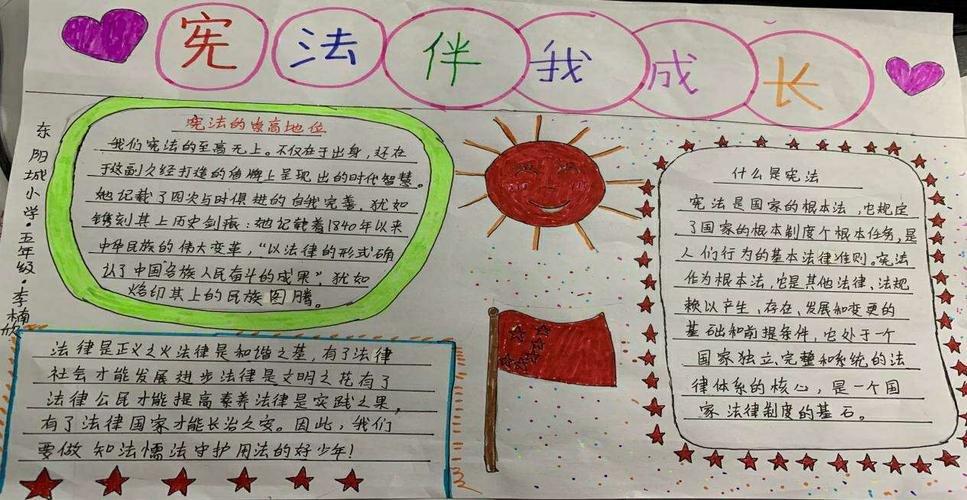 宪法伴我成长
东阳城小学·五年级·李楠欣
宪法的崇高地位
我们宪法的至高无上。不仅在于出身，还在
于这副久经打造的盾牌上呈现出的时代智慧。
她记载了因次与时俱进的自我完善，犹如
镌刻其上历史剑痕：她记载着1840年以来
中华民族的伟大变革，“以法律的形式”确
认了中国各族人民奋斗的成果”，犹如
烙印其上的民族图腾。
法律是正义之火法律是和谐之基，有了法律
社会才能发展进步法律是文明之花有了
法律公民才能提高素养法律是实践之果，
有了法律国家才能长治久安。因此，我们
要做知法懦法守护用法的好少年！
什么是宪法
宪法是国家的根本法，它规定
了国家的根本制度个根本任务，是
人们行为的基本法律准则。宪法
作为根本法，它是其他法律、法规
赖以产生、存在、发展和变更的
基础和前提条件，它处于一个
国家独立、完整和系统的法
律体系的核心，是一个国
家法律制度的基石。